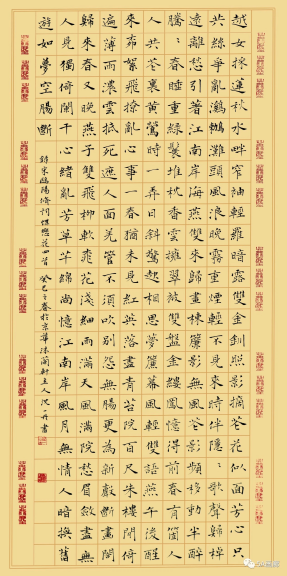 越女採蓮秋水畔窄袖輕羅暗露雙金釧照影摘花花似面芳心只
共絲爭亂鸂鶒灘頭風浪晚霧重煙輕不見來時伴隱:歌聲歸棹
遠離愁引著江南岸海燕雙來歸畫棟簾影無風花影頻移動半醉
騰:春睡重綠鬟堆枕香雲擁翠被雙盤金縷鳳憶得前春有箇人
人共花裏黃鶯時一弄日斜驚起相思夢簾幕風輕雙語燕午後醒
來柳絮飛撩亂心事一春猶未見紅英落盡青苔院百尺朱樓閒倚
遍薄雨濃雲抵死遮人面羌管不須吹別怨無腸更為新聲斷畫閣
歸來春又晚燕子雙飛柳軟桃花淺細雨滿天風滿院愁眉斂盡無
人見獨倚闌干心緒亂芳草芊綿尚憶江南岸風月無情人暗換舊
遊如夢空腸斷
錄宋歐陽修詞蝶戀花四首 癸巳之春於京華沐蘭軒主人沈一丹書